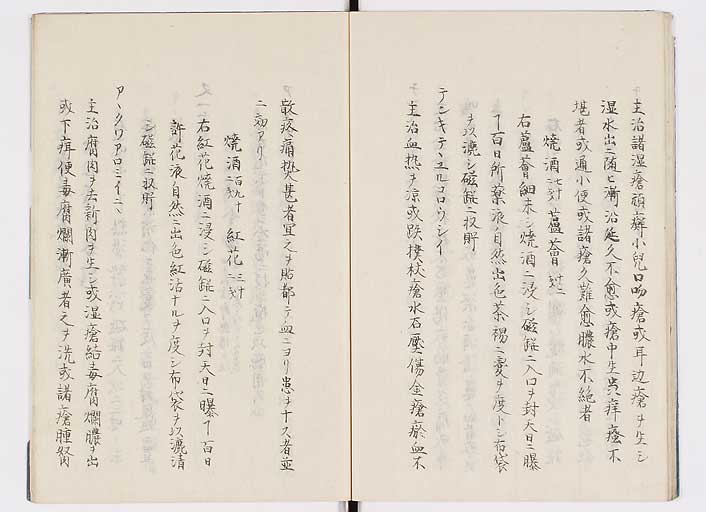 主治諸湿瘡頑癬小兒口吻瘡或耳辺瘡ヲ生シ
湿水出ニ随ヒ漸沿延久不愈或瘡中生異痒癢不
堪者或通小便或諸瘡久難愈膿水不絶者
焼酒 蘆薈
右蘆薈細末シ焼酒ニ浸シ磁錠ニ入口ヲ封天日ニ曝
丁百日所薬液自然出色茶褐ニ変ヲ度トシ布袋
ヲ以漉シ磁錠ニ収貯
テンキテヽエルコロウンイ
主治血熱ヲ涼或跌撲杖瘡水石壓傷金瘡瘀血不
散疼痛焮甚者宜之ヲ貼都テ血ニヨリ患ヲナス者並
ニ効アリ
焼酒 紅花
右紅花焼酒ニ浸シ磁錠ニ入口ヲ封天日ニ曝丁百日
許花液自然ニ出色紅沾ナルヲ度シ布袋ヲ以漉清
シ磁錠ニ収貯
アヽクワアロミイニヽ
主治腐肉ヲ去新肉ヲ生シ或湿瘡結毒腐爛膿ヲ出
或下疳便毒腐爛漸廣者之ヲ洗或諸瘡腫努